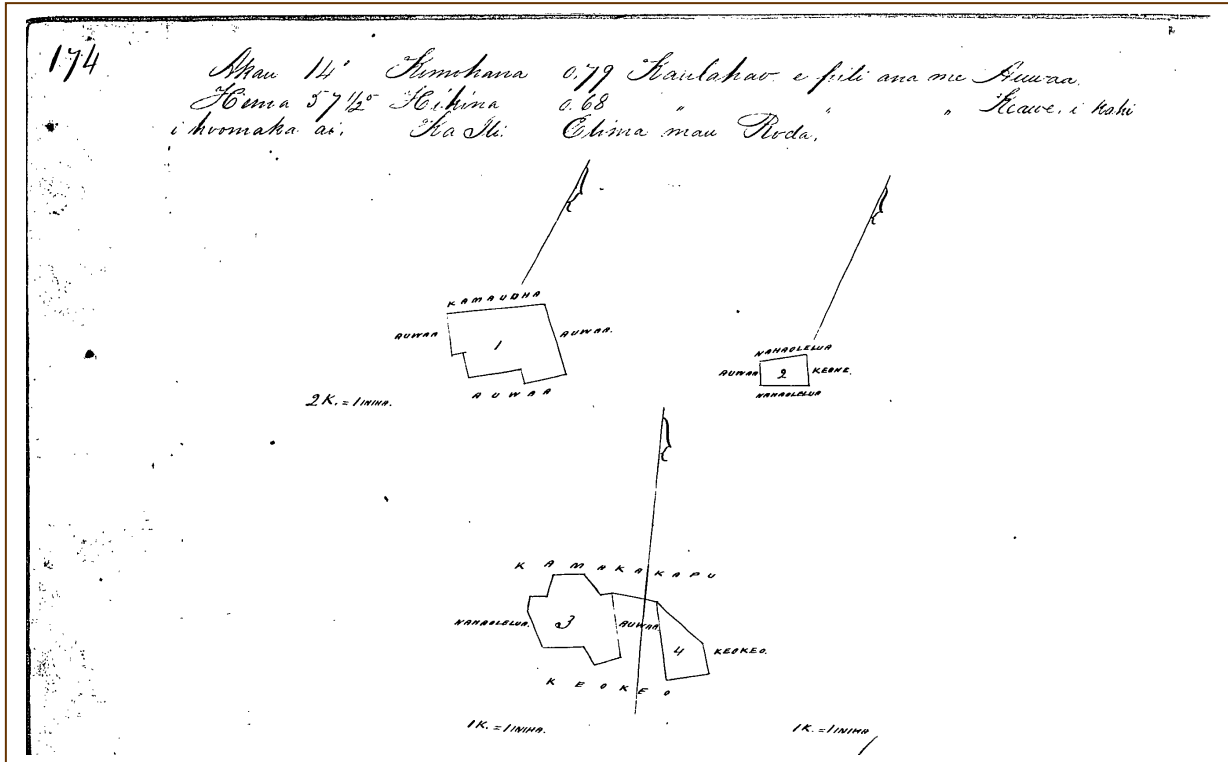 174
Akau 14° Komohana 0.79 Kaulahao e pili ana me Auwaa.
Hema 57 1/2° Hikina 0.68 " " " Keawe, i kahi
i hoomaka ai. Ka Ili. Elima mau Roda.
KAMAUOHA
AUWAA
1
AUWAA.
AUWAA
2 K. = 1 INIHA.
NAHAOLELUA
AUWAA
2
KEONE.
NAHAOLELUA
KAMAKAKAPU
NAHAOLELUA.
3
AUWAA
4
KEOKEO.
KEOKEO
1 K. = 1 INIHA.
1 K. = 1 INIHA